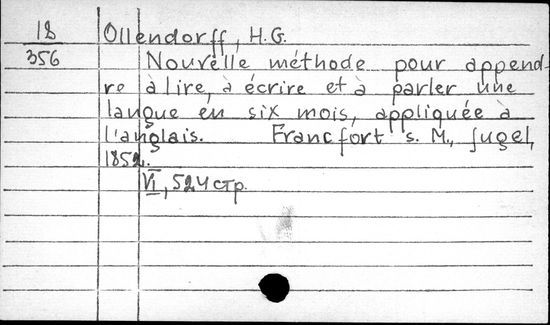 18 Ollendorff, H.G.
356 Nouvelle méthode pour append-
re à lire, à écrire et à parler une
langue en six mois, appliquée à
l'anglais. Francfort s. M., Jugel,
1852.
VI, 524 стр.